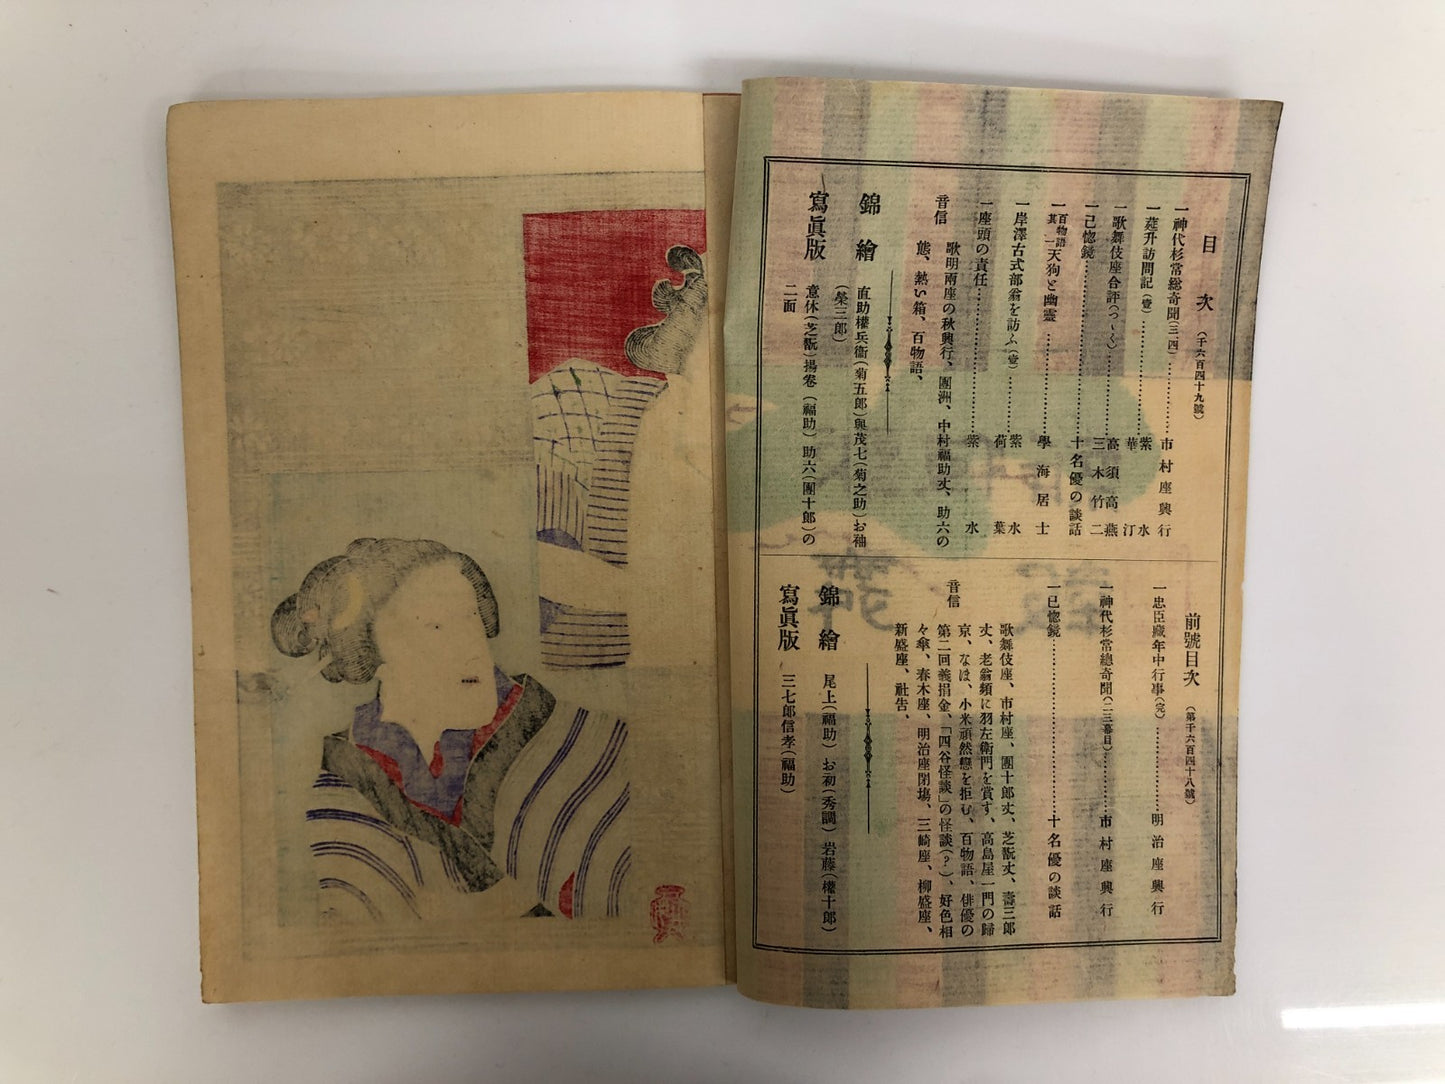 目次（千六百四十九號）
一神代杉常總奇聞（三、四）……市村座興行
一莚升訪問記（壹）……紫水
華汀
一歌舞伎座合評（つゞく）……高須高燕
三木竹二
一己惚鏡……十名優の談話
一百物語其一天狗と幽靈……學海居士
一岸澤古式部翁を訪ふ（壹）……紫水
荷葉
一座頭の責任……紫水
音信
歌明兩座の秋興行、團洲、中村福助丈、助六の
熊、熱い箱、百物語、
錦繪
直助權兵衞（菊五郎）與茂七（菊之助）お袖
（榮三郎）
寫眞版
意休（芝翫）揚卷（福助）助六（團十郎）の
二面
前號目次（第千六百四十八號）
一忠臣藏年中行事（完）……明治座興行
一神代杉常總奇聞（二三幕目）……市村座興行
一己惚鏡……十名優の談話
音信
歌舞伎座、市村座、團十郎丈、芝翫丈、壽三郎
丈、老翁頻に羽左衞門を賞す、高島屋一門の歸
京、なほ、小米頑然戀を拒む、百物語、俳優の
第二回義捐金、「四谷怪談」の怪談（？）、好色相
々傘、春木座、明治座閉塲、三崎座、柳盛座、
新盛座、社告、
錦繪
尾上（福助）お初（秀調）岩藤（權十郎）
寫眞版
三七郎信孝（福助）